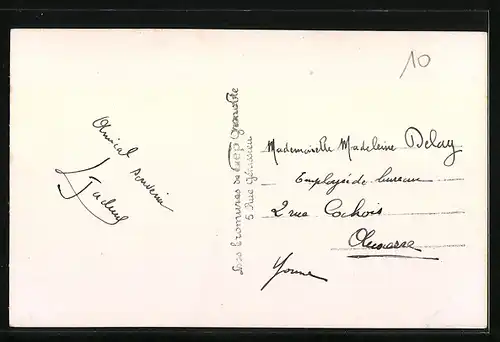 10
Amical souvenir
Les bromures de Gep Grenoble
5 Rue Génissieu
Mademoiselle Madeleine Delay
Employée de bureau
2 rue Cochois
Auxerre
Yonne